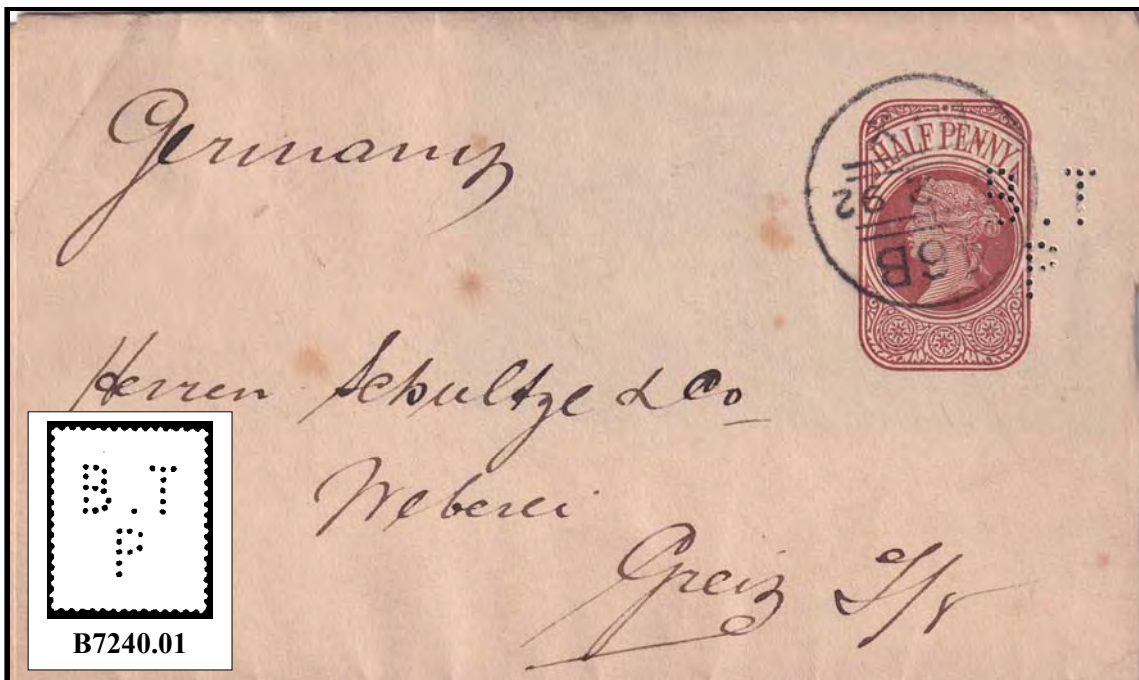 Germany
HALF PENNY
6B
2
92
B.T
P
Herren Schultze & Co
Weberei
Greiz
B.T
P
B7240.01